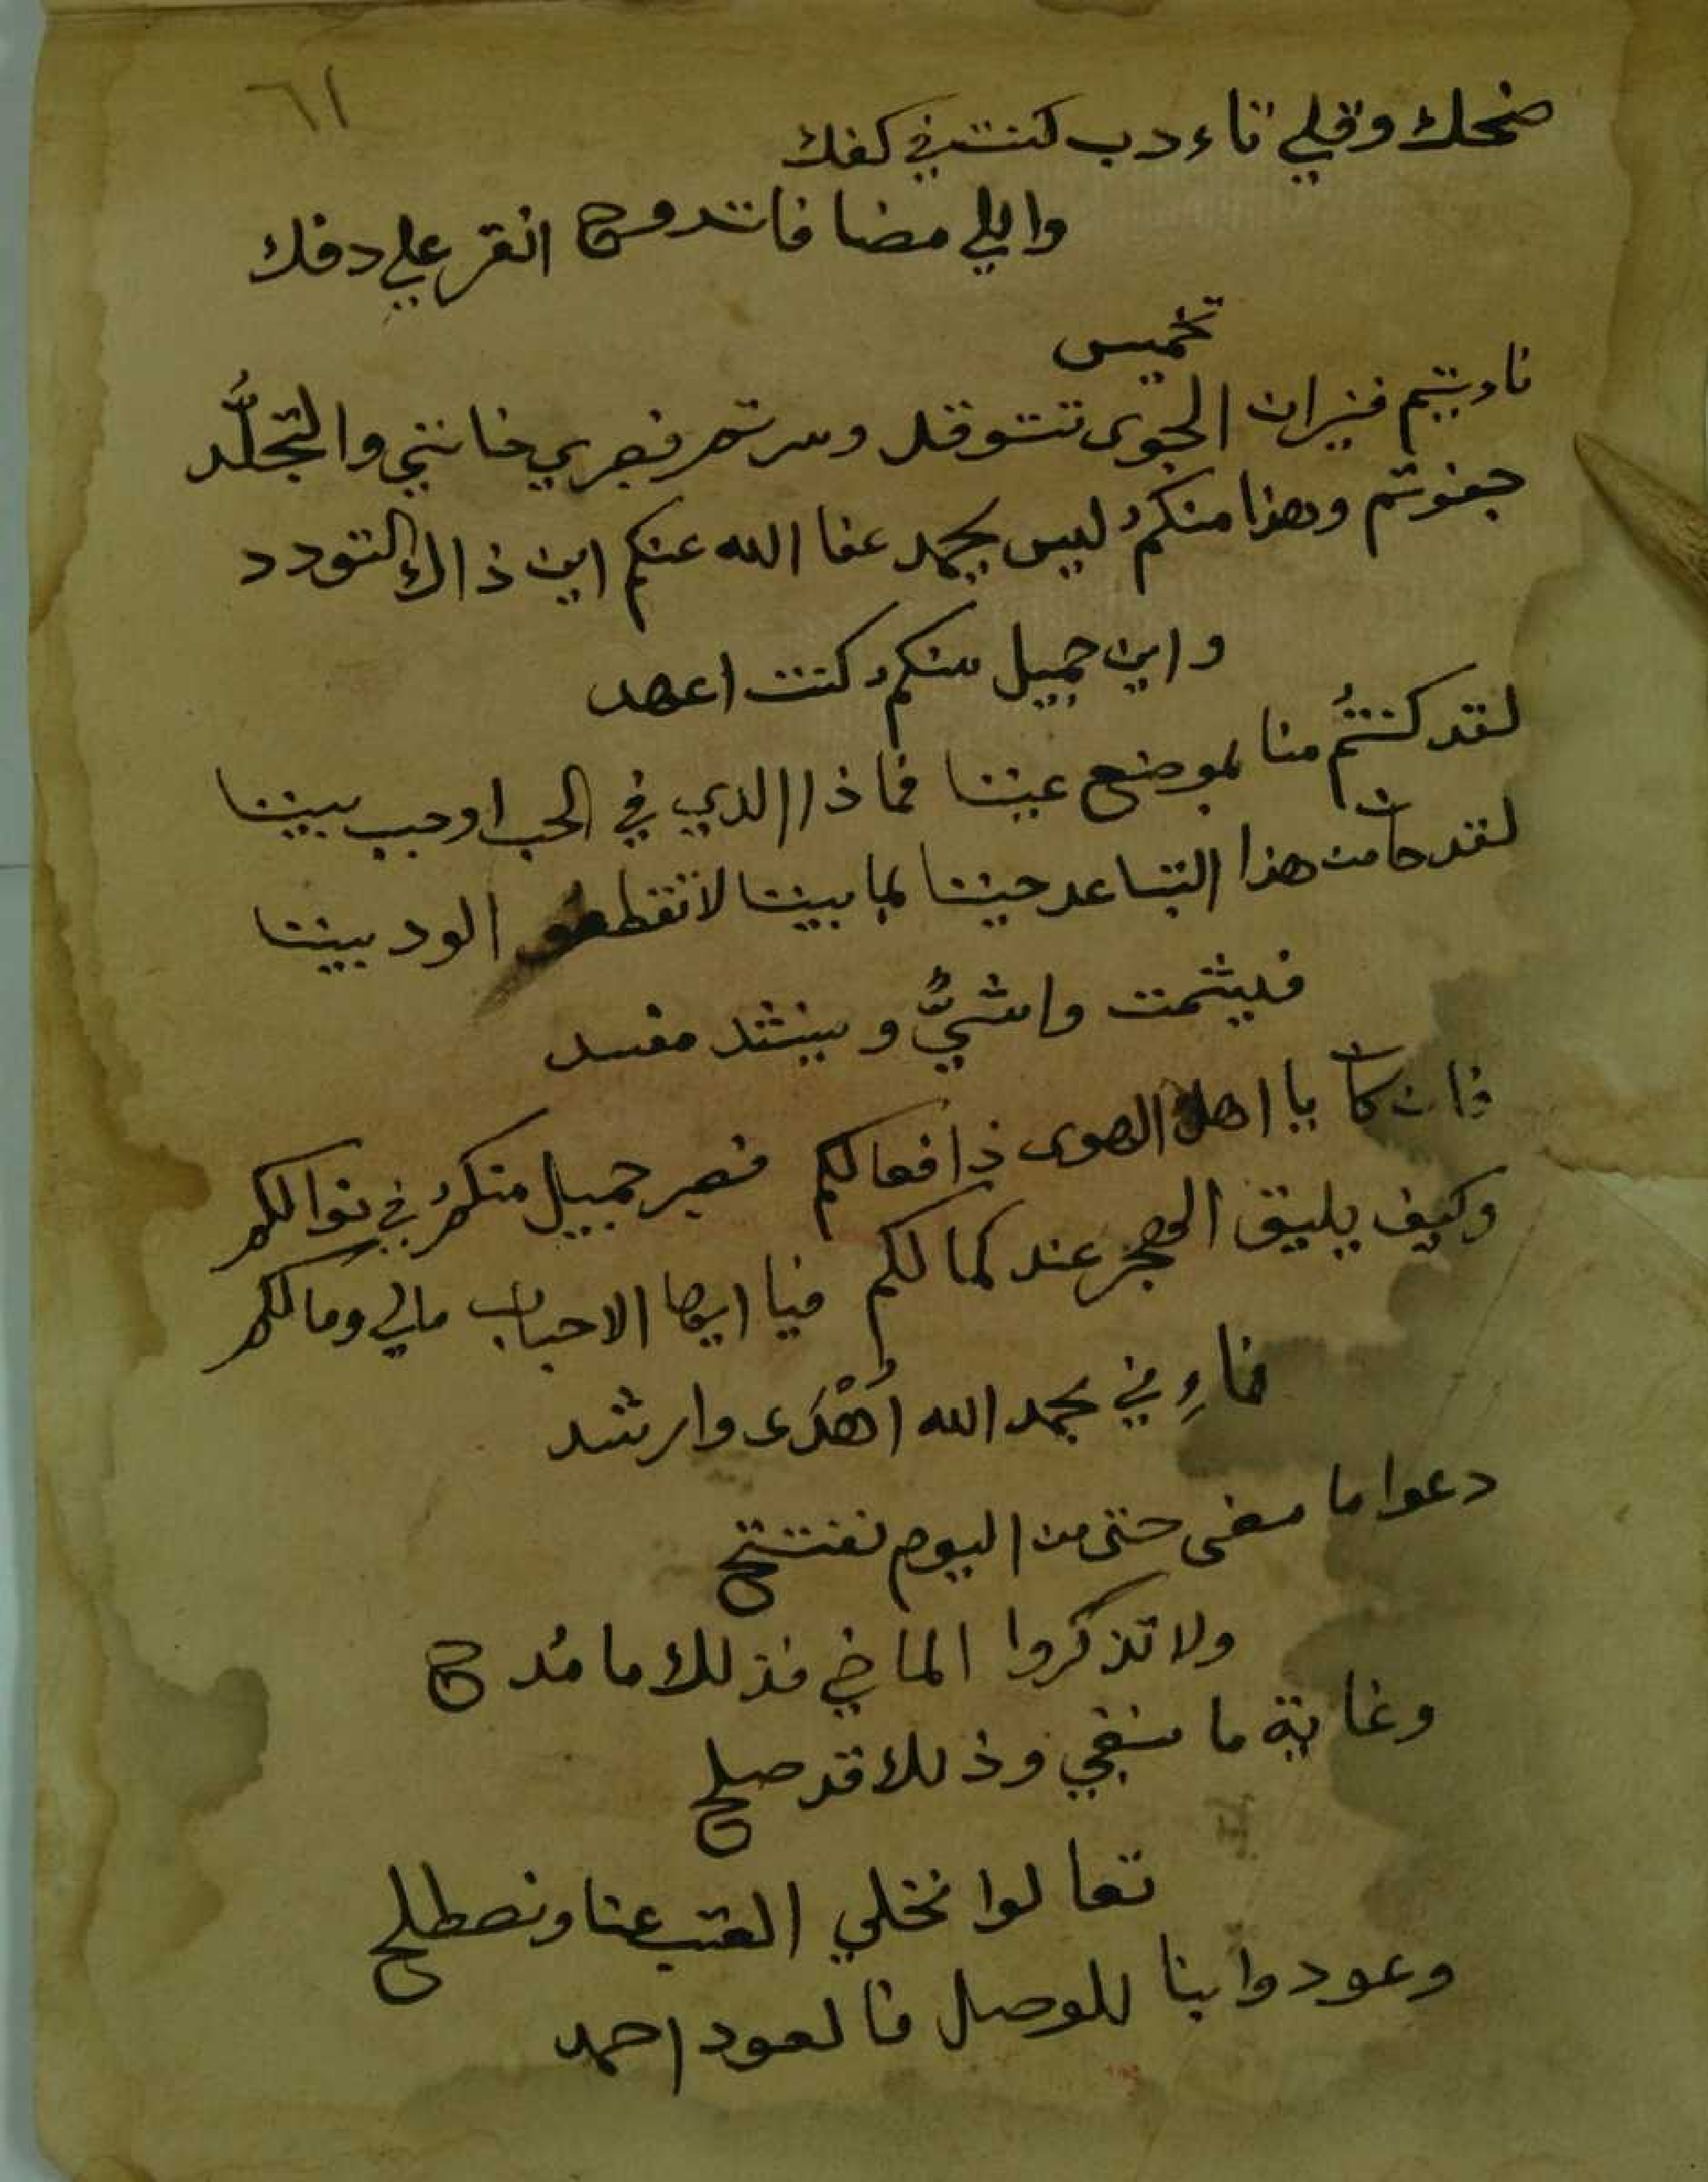 ٦١
ضحك وقلي تاءدب كنت في كفك
والي مضا فات دوح انقر علي دفك
تخميس
ناديتم فنيران الجوى تتوقد وسرتم فصبري خانني والتجلُّد
جفوتم وهذا منكمُ ليس يحمد عفا الله عنكم اين ذاك التودد
واين جميل منكمُ كنت اعهد
لقد كنتُم منا بموضع عيننا فماذا الذي في الحب اوجب بيننا
لقد حان من هذا التباعد حيننا بما بيننا لا تقطعو الود بيننا
فيشمت واشيٌّ وينشد مفسد
فان كان يا اهل الهوى ذا فعالكم فصبر جميل منكمُ في نوالكم
وكيف يليق الهجر عند كمالكم فيا ايها الاحباب مالي ومالكم
فاءِني بحمد الله أُهْدَى وارشد
دعوا ما مضى حتى من اليوم نفتتح
ولا تذكروا الماضي فذلك ما مُدح
وغاية ما نبقي وذلك قد صلح
تعالوا نخلي العتب عنا ونصطلح
وعودوا بنا للوصل فالعود احمد